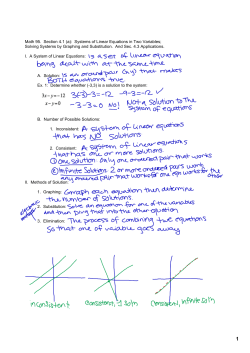 Math 95 Section 4.1 (a): Systems of Linear Equations in Two Variables;
Solving Systems by Graphing and Substitution. And Sec. 4.3 Applications.
I. A System of Linear Equations: is a set of linear equation
being dealt with at the same time
A. Solution: Is an ordered pair (x,y) that makes
BOTH equations true.
Ex. 1: Determine whether (-3,3) is a solution to the system:
3x-y=-12 3(-3)-3=-12 -9-3=-12 ✓
x-y=0 -3-3=0 NO! Not a solution to the
system of Equations
B. Number of Possible Solutions:
1. Inconsistent: A system of linear
that has NO solutions
2. Consistent: A system of linear equations
that has one or more solutions.
① one solution: Only one ordered pair that works
② Infinite Solutions: 2 or more ordered pairs work.
any ordered pair that works for one eqn works for the
other
II. Methods of Solution:
1. Graphing: Graph each equation then determine
the number of solutions.
2. Substitution: Solve an equation for one of the variables
and then plug that into the other equation
3. Elimination: The process of combining two equations
so that one of variable goes away
inconsistent consistent, 1 soln Consistent, infinite soln
1